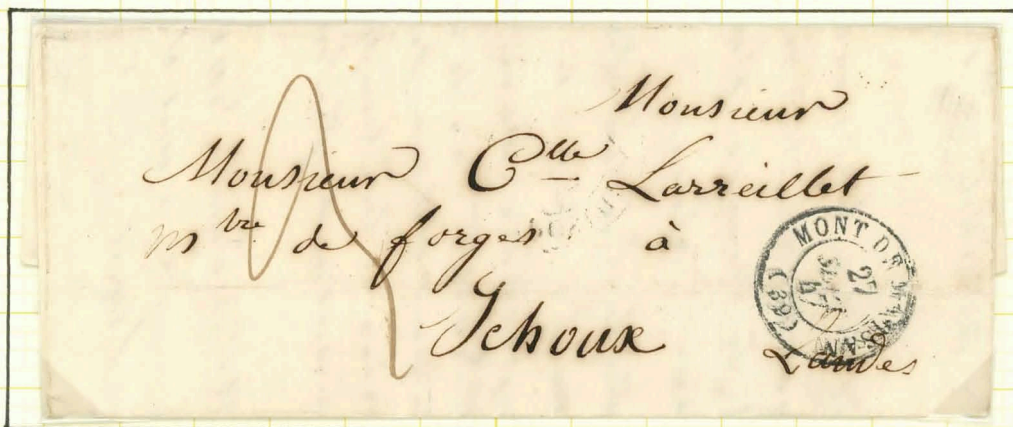 Monsieur
Monsieur C^lle Larreillet
M^tre de forges à
Ychoux
Landes
MONT DE MARSAN (39)
27
SEPT
47
2